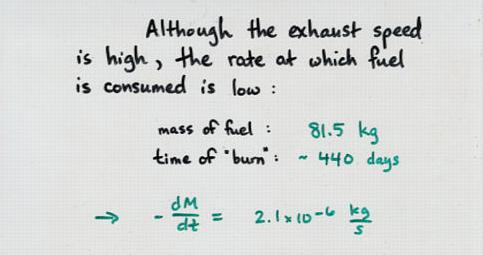 Although the exhaust speed
is high, the rate at which fuel
is consumed is low :
mass of fuel : 81.5 kg
time of "burn" : ~ 440 days
→ - dM/dt = 2.1 x 10^-6 kg/s